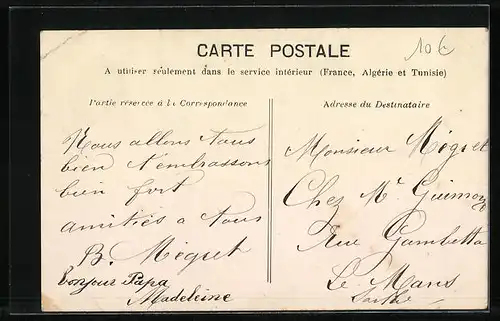 CARTE POSTALE
10€
A utiliser seulement dans le service intérieur (France, Algérie et Tunisie)
Partie réservée à la Correspondance
Nous allons tous
bien t'embrassons
bien fort
amitiés a tous
B. Mégret
Bonjour Papa
Madeleine
Adresse du Destinataire
Monsieur Mégret
Chez Mr
Rue Gambetta
Le Mans
Sarthe